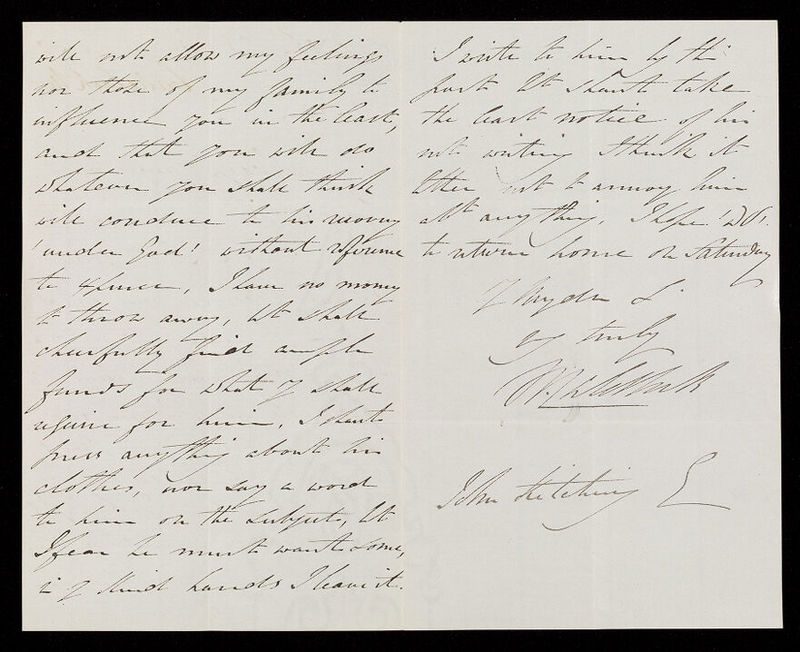 will not allow my feelings
nor those of my family to
influence you in the least,
and that you will do
whatever you shall think
will conduce to his recovery
'under God' without reference
to expence, I have no money
to throw away, bt shall
cheerfully find ample
funds for what y shall
require for him, I shant
press anything about his
clothes, nor say a word
to him on the subject, bt
I fear he must want some,
in y kind hands I leave it.
I write to him by this
post bt shant take
the least notice of his
not writing I think it
better not to annoy him
abt anything, I hope 'DV'
to return home on Saturday
I am y dear Sr
truly
John Kitching E